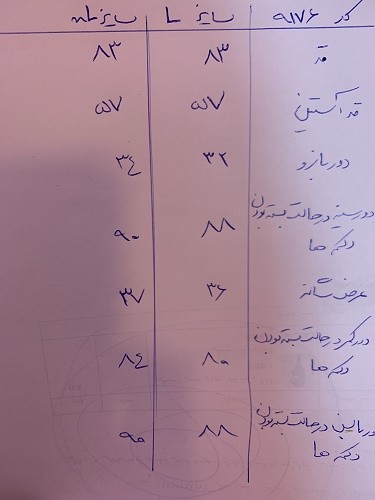 کد ۹۱۷۶ سایز L سایز XL
قد ۸۳ ۸۳
قد آستین ۵۷ ۵۷
دور بازو ۳۲ ۳۴
دور سینه در حالت بسته بودن
دکمه ها ۸۸ ۹۰
عرض شانه ۳۶ ۳۷
دور کمر در حالت بسته بودن
دکمه ها ۸۰ ۸۴
دور پایین در حالت بسته بودن
دکمه ها ۸۸ ۹۰